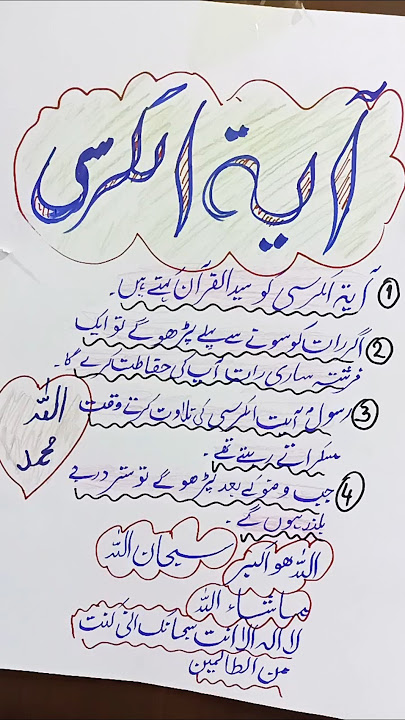 آیۃ الکرسی
① آیۃ الکرسی کو سید القرآن کہتے ہیں۔
② اگر رات کو سونے سے پہلے پڑھو گے تو ایک
فرشتہ ساری رات آپ کی حفاظت کرے گا۔
③ رسولؐ آیت الکرسی کی تلاوت کرتے وقت
مسکراتے رہتے تھے۔
اللہ
محمد
④ جب وضو کے بعد پڑھو گے تو ستر درجے
بلند ہوں گے۔
اللہ ھو اکبر سبحان اللہ
ماشاء اللہ
لا الہ الا انت سبحانک انی کنت
من الظالمین